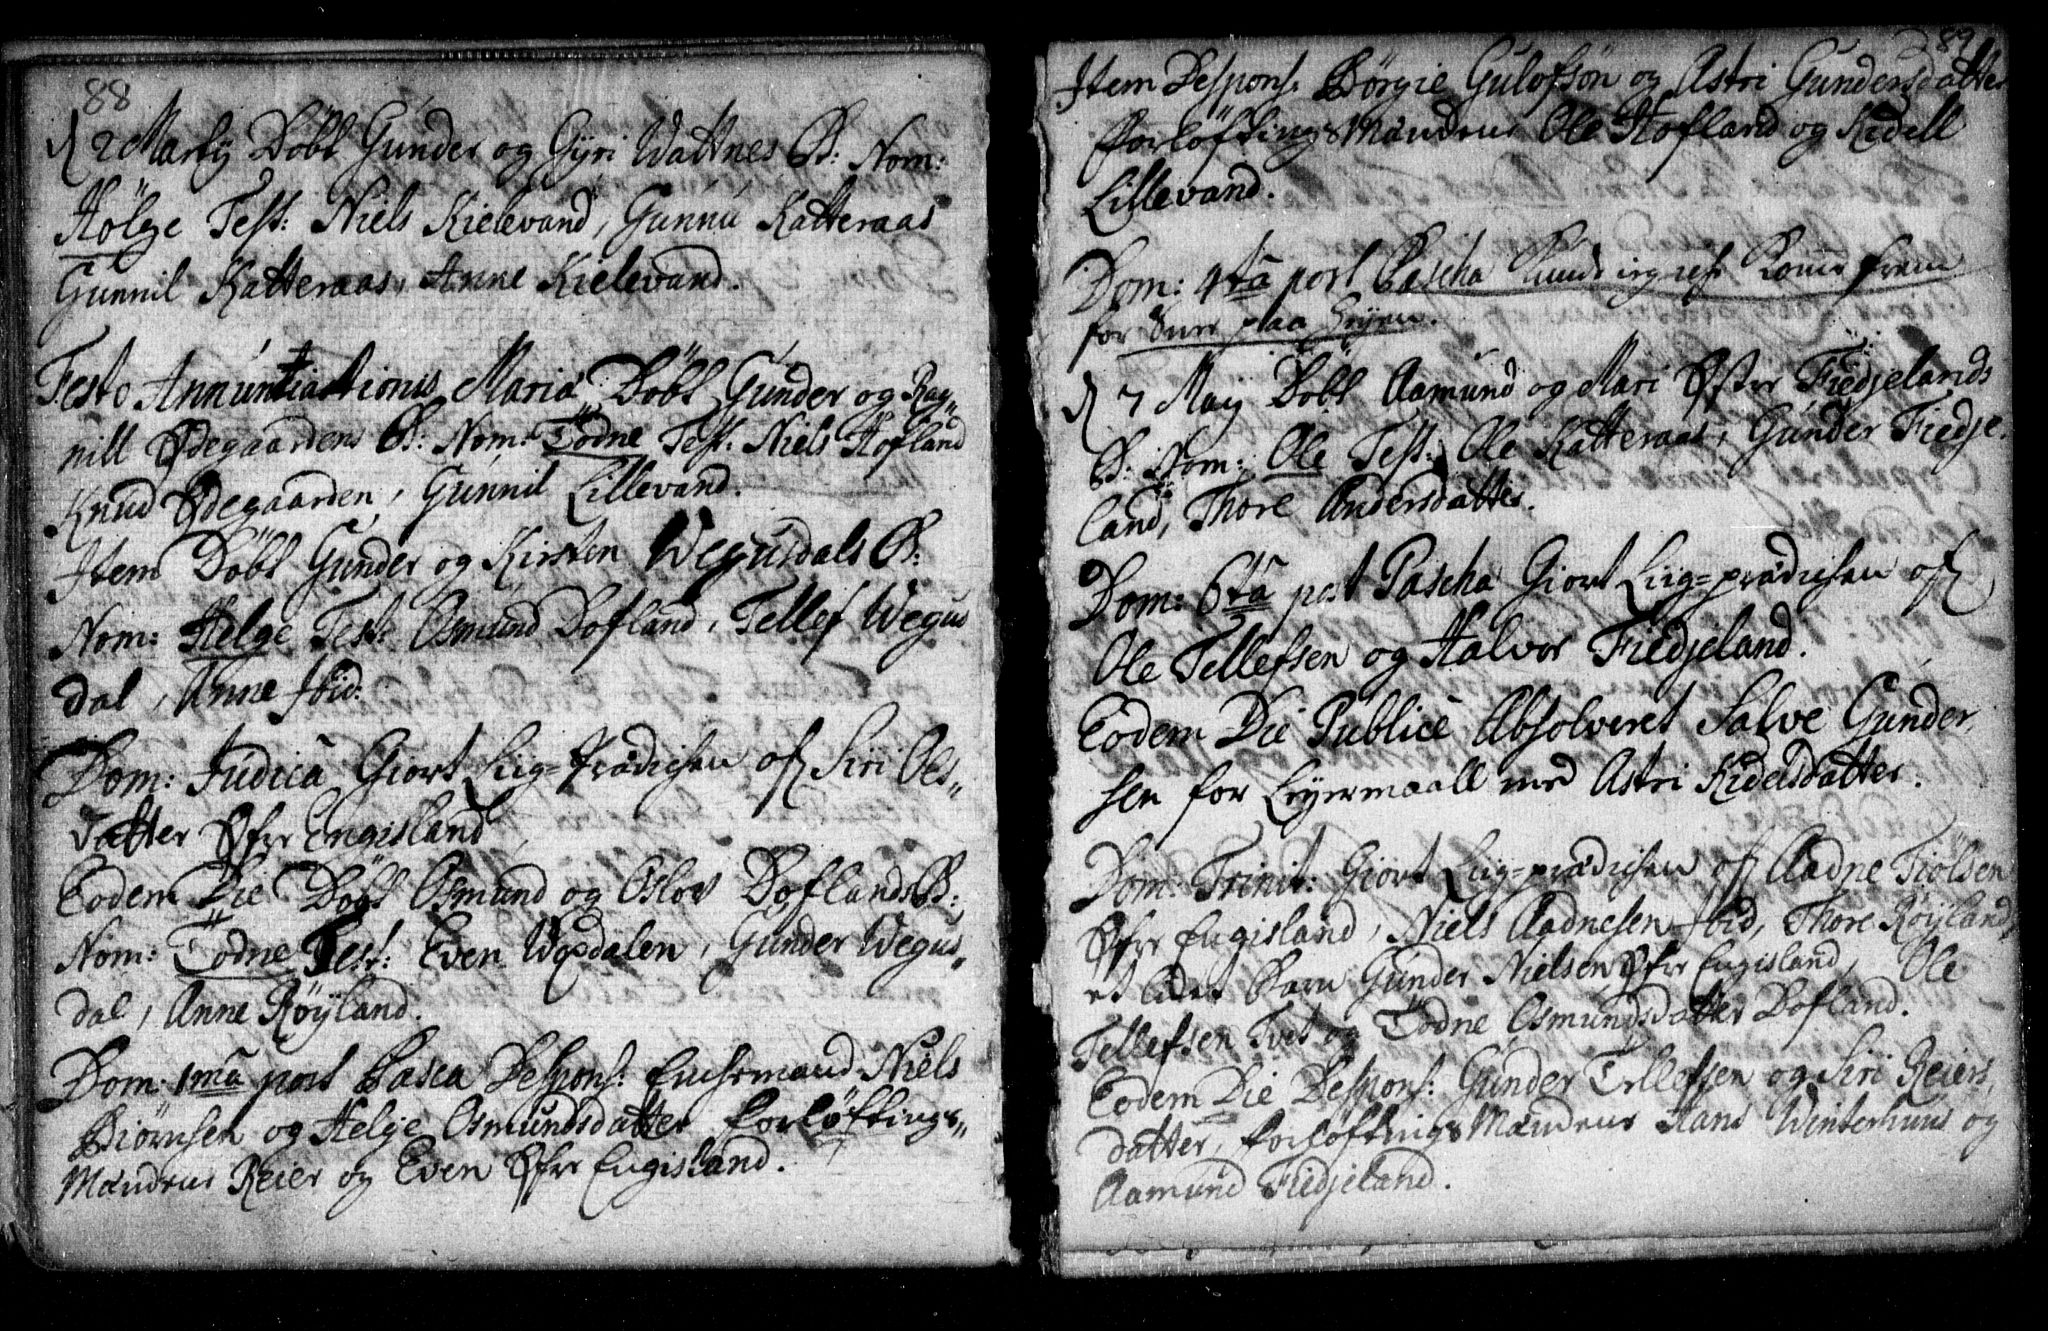 88
d 2 Marty Döbt Gunder og Gyri Wattnes B: Nom:
Hölge Test: Niels Kielevand, Gunnu Katteraas
Gunnil Katteraas, Anne Kielevand.
Festo Annuntiationis Mariæ Döbt Gunder og Rag„
nill Ødegaardens B: Nom: Tödne Test: Niels Hofland
Knud Ødegaarden, Gunnil Lillevand.
Item Döbt Gunder og Kirsten Wegusdals B:
Nom: Helge Test: Osmund Dofland, Tellef Wegus
dal, Anne ibid:
Dom: Judica Giort Liig=Prædichen of Siri Ols„
datter Øfre Engisland
Eodem Die Döbt Osmund og Oslov Doflands B:
Nom: Tödne Test: Even Woxdalen, Gunder Wegus„
dal, Anne Röyland.
Dom: 1ma post Pasca Despons: Enchemand Niels
Biörnsen og Helge Osmundsdatter Forløftnings„
Mændene Reier og Even Øfre Engisland.
89
Item Despons: Börgie Gulofsön og Astri Gundersdatter
Forløftnings Mændene Ole Hofland og Kedell
Lillevand.
Dom: 4ta post Pascha kunde ieg icke komme frem
for Snee paa Heyen.
d 7 May Döbt Aamund og Mari Øfre Fiedjelands
B: Nom: Ole Test: Ole Katteraas, Gunder Fiedje„
land, Thore Andersdatter.
Dom: 6ta post Pascha Giort Liig=prædichen of
Ole Tellefsen og Halvor Fiedjeland.
Eodem Die Publicè Absolveret Salve Gunder„
sen for Leyermaall med Astri Kidelsdatter.
Dom: Trinit: Giort Liig=prædichen of Aadne Tiölsen
Øfre Engisland, Niels Aadnesen ibid, Thore Röylands
et lidet Barn Gunder Nielsen Øfre Engisland, Ole
Tellefsen Tvet og Tödne Osmundsdatter Dofland.
Eodem Die Despons: Gunder Tellefsen og Siri Reiers„
datter, Forløftnings Mændene Hans Winterhuus og
Aamund Fiedjeland.